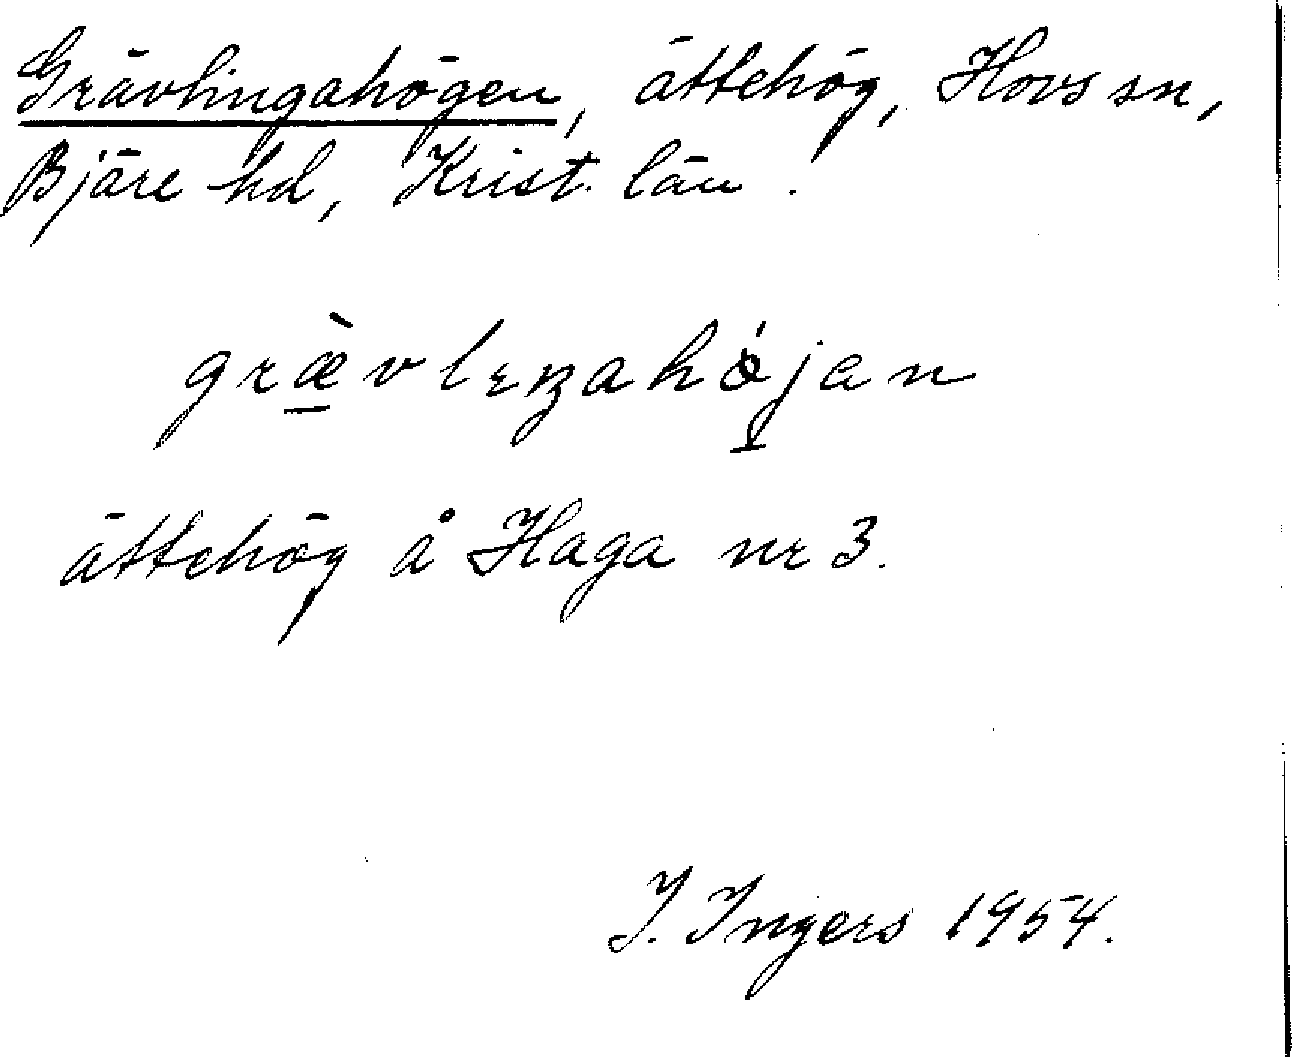 Grävlingahögen, ättehög, Hovs sn,
Bjäre hd, Krist. län.
græ̀vlɛŋahǿjan
ättehög å Haga nr 3.
I. Ingers 1954.